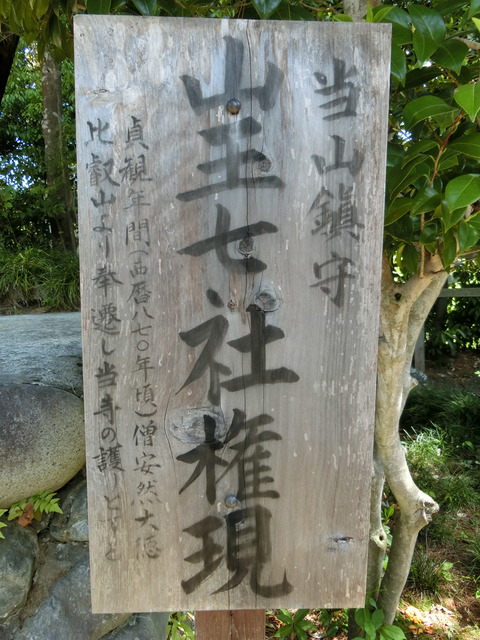 当山鎮守
山王七社権現
貞観年間(西暦八七〇年頃)僧安然大徳
比叡山より奉遷し当寺の護り